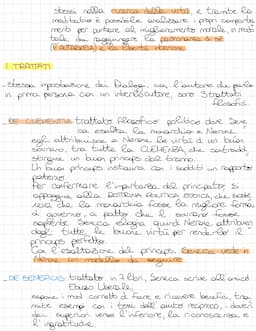 stessi nella ricerca della virtù e tramite la
meditazione è possibile analizzare i propri comporta
menti per puntare al miglioramento morale, in modo
tale da raggiungere la padronanza di sé
(l'AUTARKEIA) e la libertà interiore.
I TRATTATI
- Stessa impostazione dei Dialogi, con l'autore che parla
in prima persona con un interlocutore, sono 3 trattati
filosofici.
- DE CLEMENTIA: trattato filosofico politico dove Sene
ca esalta la monarchia e Nerone.
egli attribuisce a Nerone le virtù di un buon
sovrano, tra tutte la CLEMENZA, che contraddi
stingue un buon princeps dal tiranno.
Un buon princeps instaura con i sudditi un rapporto
paterno.
Per confermare l'importanza del principato, si
appoggia alla DOTTRINA POLITICA STOICA, che soste
neva che la monarchia fosse la migliore forma
di governo, a patto che il sovrano fosse
sapiente. Seneca elogia quindi Nerone attribuen
dogli tutte le buone virtù per renderlo il
princeps perfetto.
Con l'esaltazione del princeps, Seneca vede in
Nerone un modello da seguire.
- DE BENEFICIIS: trattato in 7 libri, Seneca scrive all'amico
Ebuzio Liberale,
espone i modi corretti di fare e ricevere benefici, tra
mite esempi con i temi dell'aiuto reciproco, i doveri
dei superiori verso l'inferiore, la riconoscenza e
l'ingratitudine.